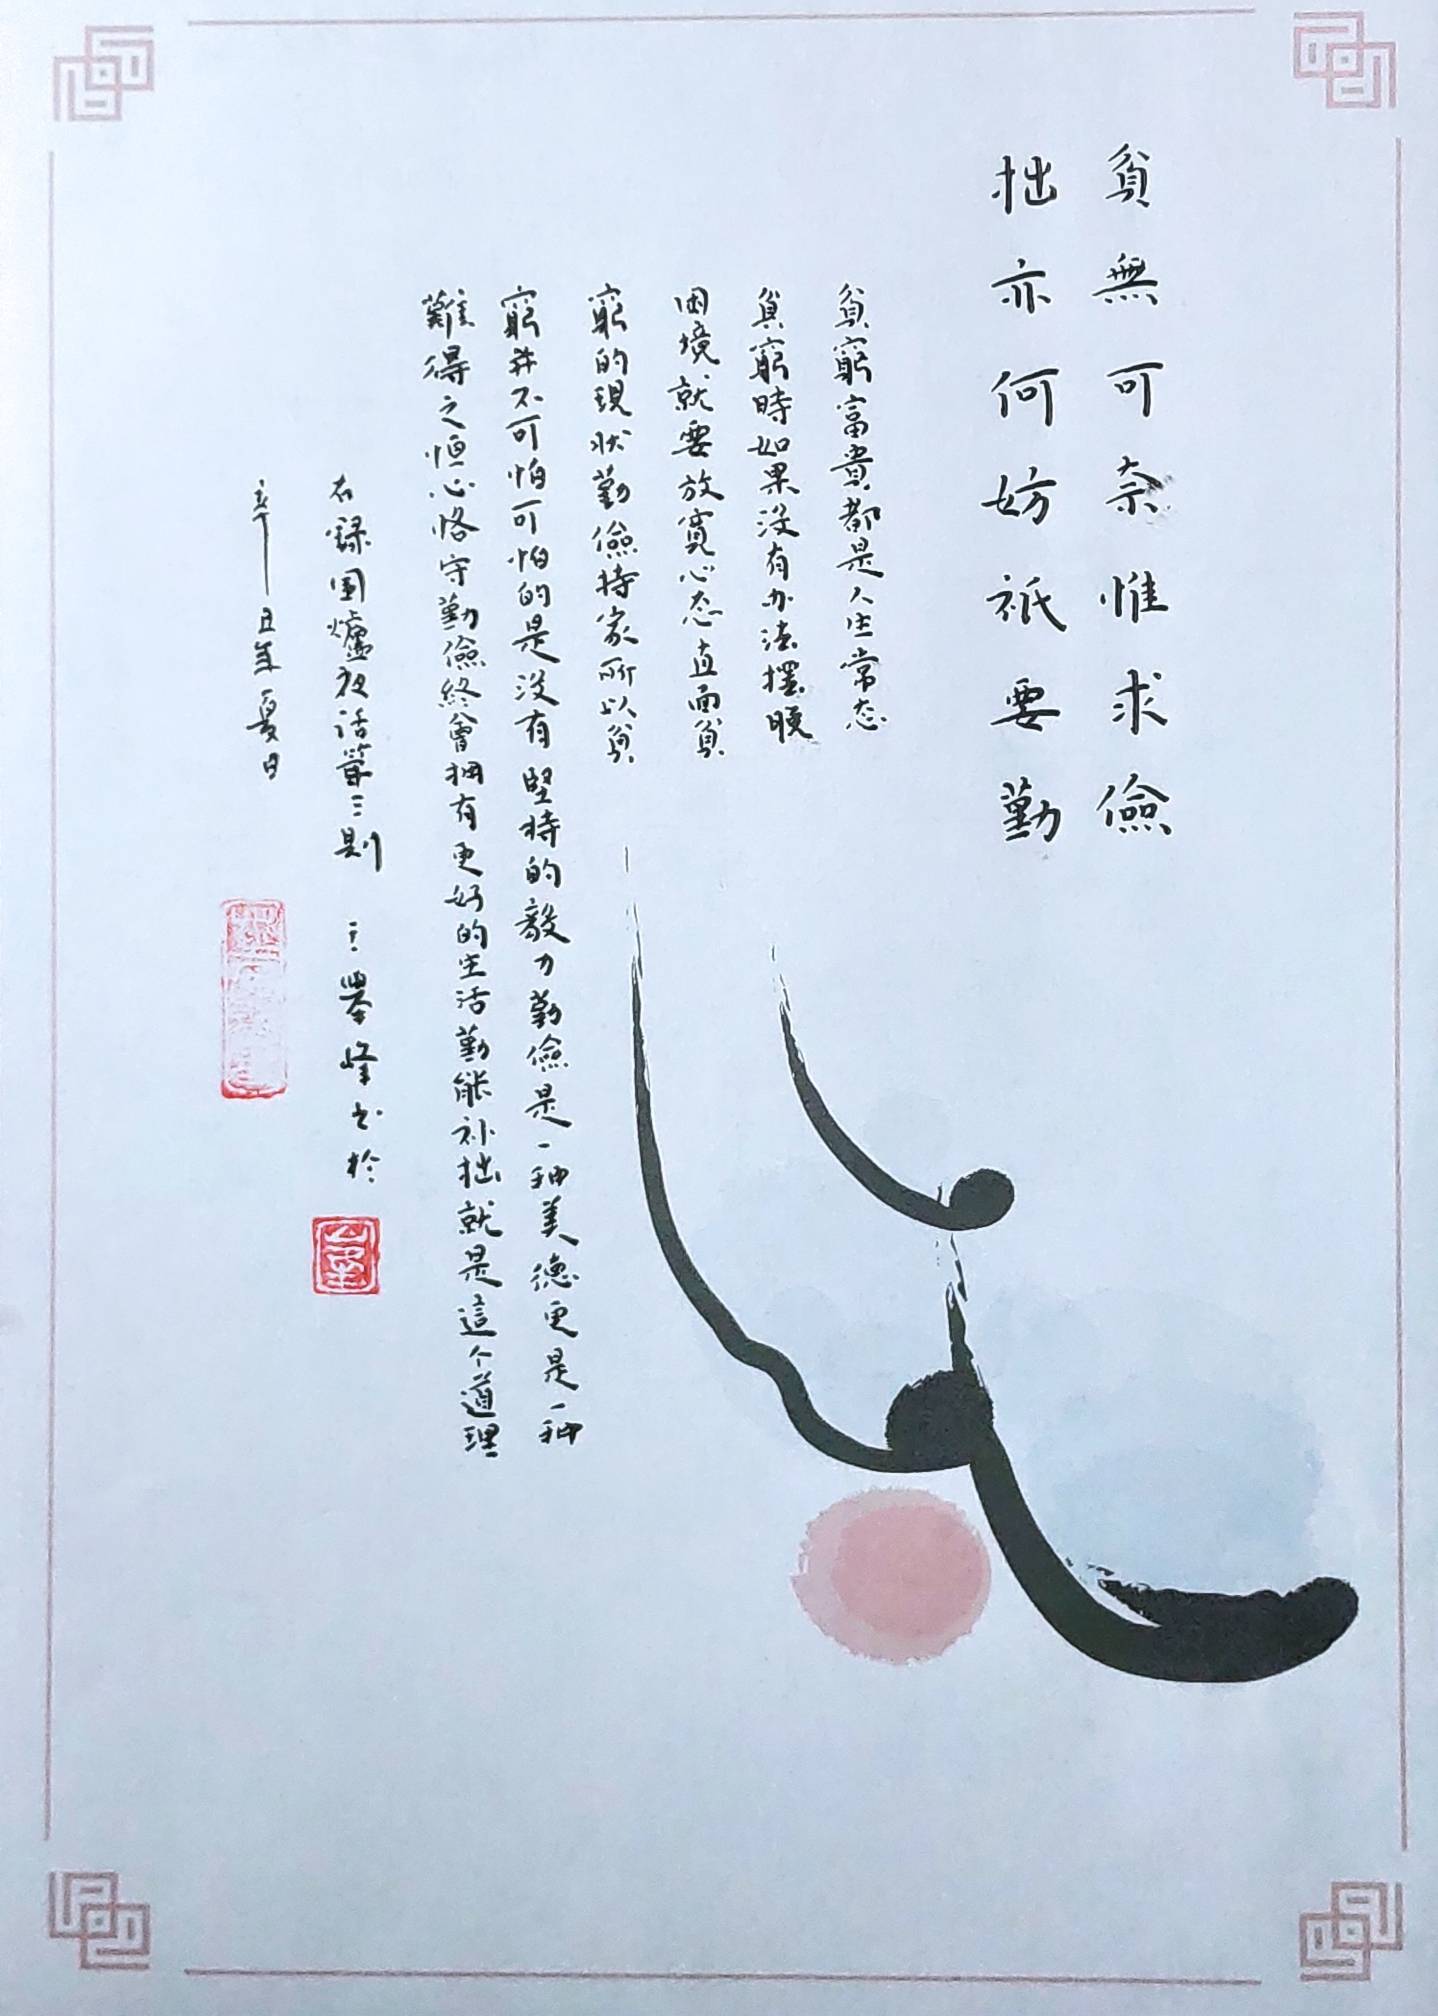 貧無可奈惟求儉
拙亦何妨祇要勤
貧窮富貴都是人生常态
貧窮時如果没有办法擺脱
困境就要放寬心态直面貧
窮的現狀勤儉持家所以貧
窮并不可怕可怕的是没有堅持的毅力勤儉是一种美德更是一种
難得之恒心恪守勤儉終會拥有更好的生活勤能补拙就是這个道理
右録圍爐夜话第三則 王舉峰书於
辛丑年夏日